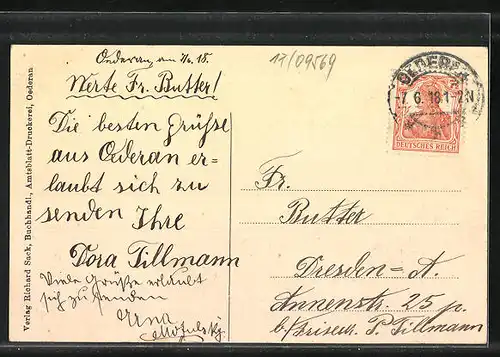 Oederan am 7/6. 18.
Werte Fr. Butter!
Die besten Grüsse
aus Oederan er=
laubt sich zu
senden Ihre
Dora Tillmann
Viele Grüße erlaubt
sich zu senden
Erna
17/09569
OEDERAN
-7. 6. 18.1-2N
DEUTSCHES REICH
Fr.
Butter
Dresden=A.
Annenstr. 25 p.
b/ P. Tillmann
Verlag Richard Sack, Buchhandl., Amtsblatt-Druckerei, Oederan